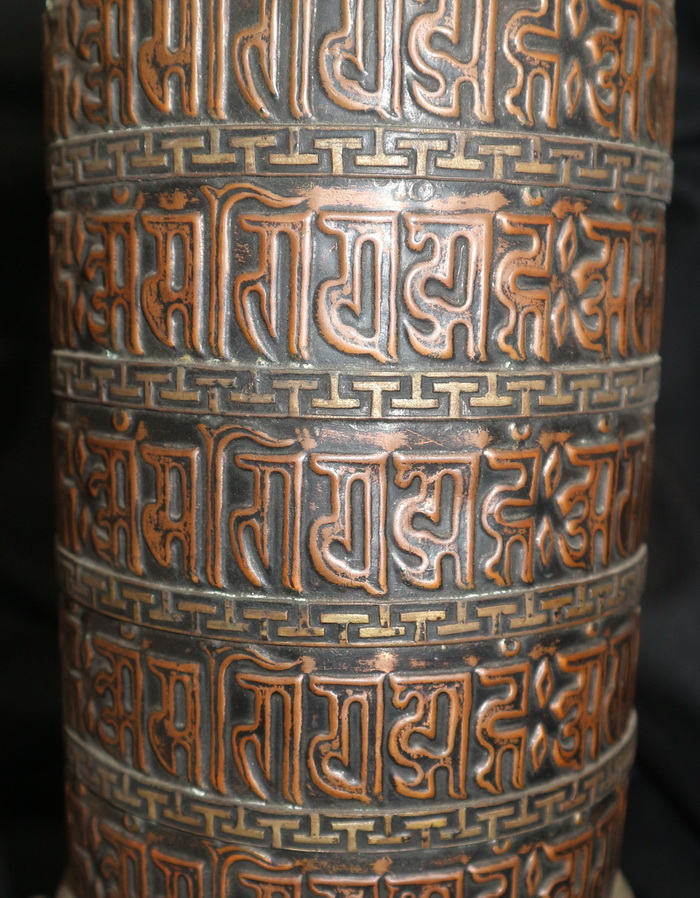 ओं मणिपद्मे हूँ
ओं मणिपद्मे हूँ
ओं मणिपद्मे हूँ
ओं मणिपद्मे हूँ
ओं मणिपद्मे हूँ